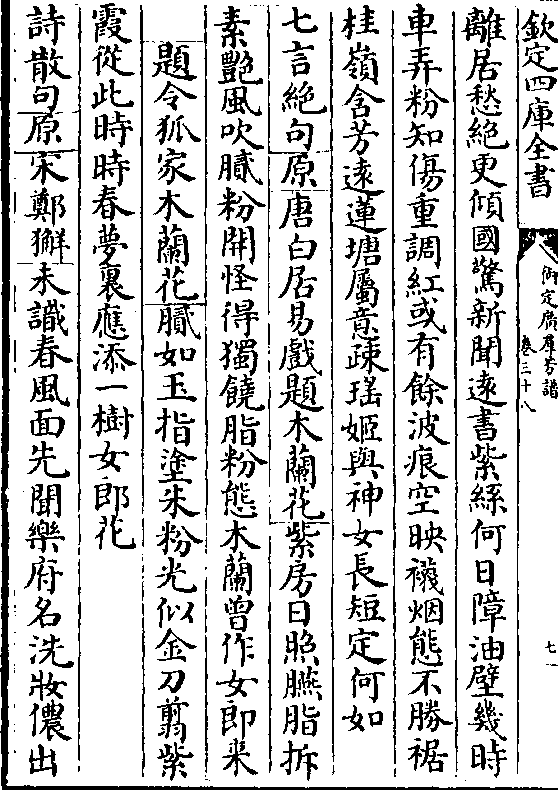 欽定四庫全書
御定廣羣芳譜
卷三十八
七
離居愁絶更傾國驚新聞遠書紫絲何日障油壁幾時
車弄粉知傷重調紅或有餘波痕空映襪烟態不勝裾
桂嶺含芳遠蓮塘屬意疎瑶姬與神女長短定何如
七言絶句原唐白居易戲題木蘭花紫房日照臙脂拆
素艷風吹膩粉開怪得獨饒脂粉態木蘭曾作女郎来
題令狐家木蘭花膩如玉指塗朱粉光似金刀翦紫
霞從此時時春夢裏應添一樹女郎花
詩散句原宋鄭獬未識春風面先聞樂府名洗妝儂出